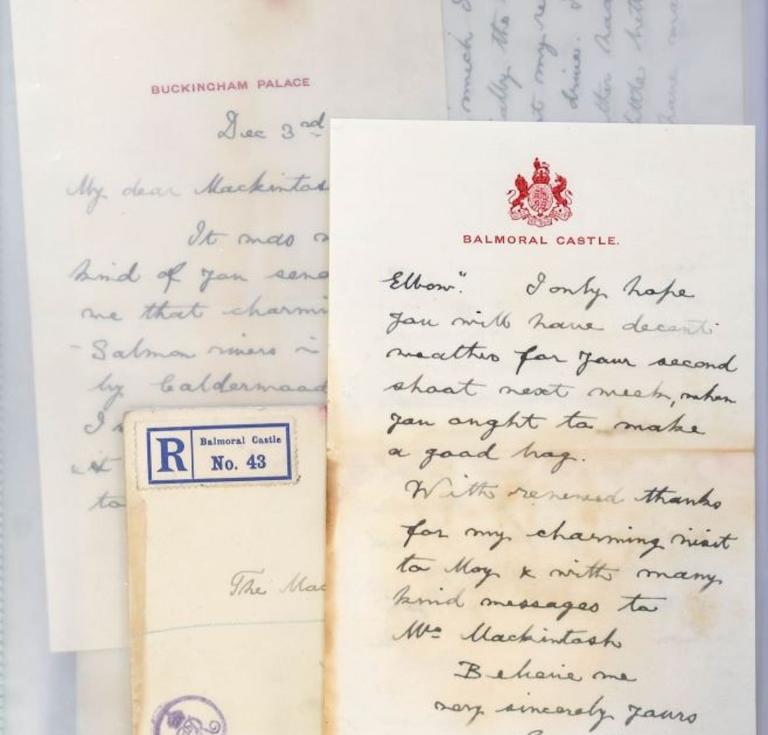 BUCKINGHAM PALACE
Dec 3rd
My dear Mackintos
It was
kind of you send
me that charmi
Salmon rivers
by Calderwood
I
it
to
BALMORAL CASTLE.
Elbow". I only hope
you will have decent
weather for your second
shoot next week, when
you ought to make
a good bag.
With renewed thanks
for my charming visit
to Moy & with many
kind messages to
Mrs Mackintosh
Believe me
very sincerely yours
R
Balmoral Castle
No. 43
The Mac
much
my
drive.
little
have